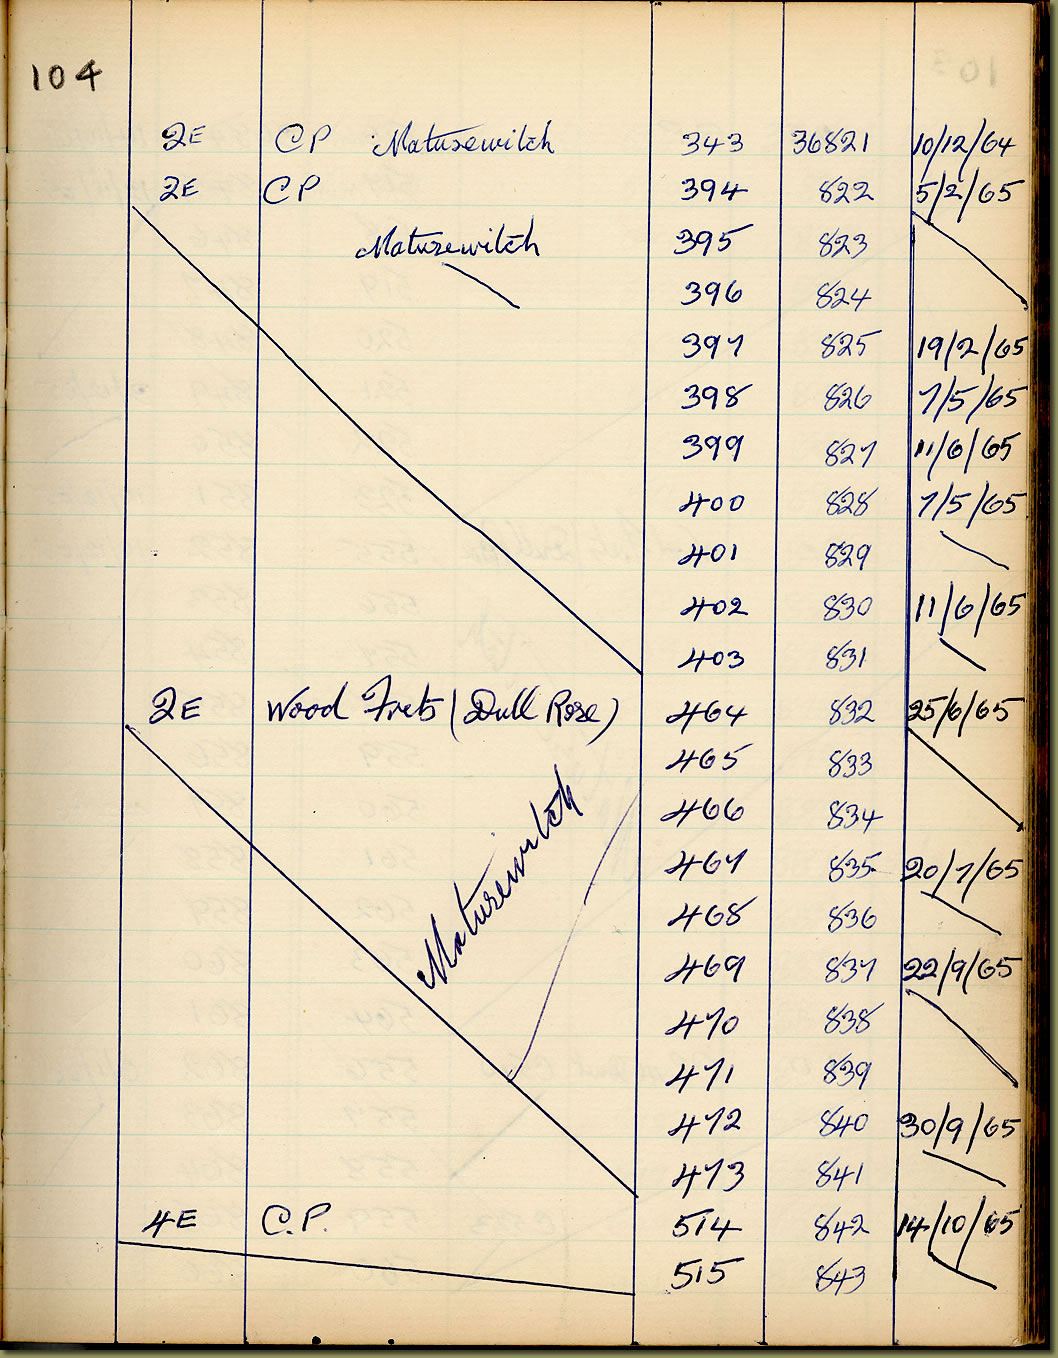 104
2E CP Maturewitch 343 36821 10/12/64
2E CP 394 822 5/2/65
Maturewitch 395 823
396 824
397 825 19/2/65
398 826 7/5/65
399 827 11/6/65
400 828 7/5/65
401 829
402 830 11/6/65
403 831
2E Wood Frets (Dull Rose) 464 832 25/6/65
465 833
466 834
Maturewitch 467 835 20/7/65
468 836
469 837 22/9/65
470 838
471 839
472 840 30/9/65
473 841
4E C.P. 514 842 14/10/65
515 843